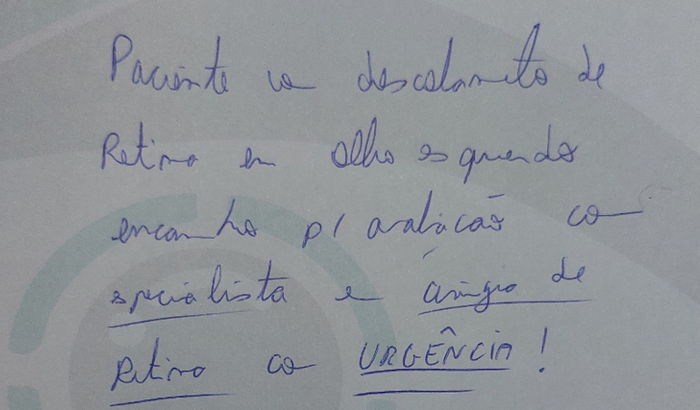 Paciente co descolamento de
Retina em olho esquerdo
encaminho p/ avaliação co
especialista e cirurgia de
Retina co URGÊNCIA!